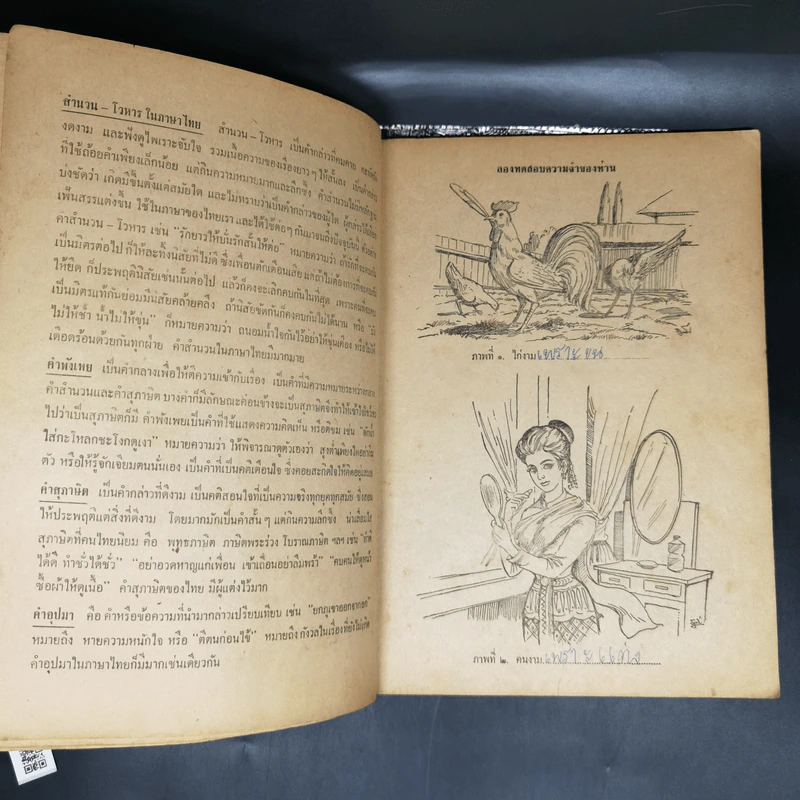 สำนวน – โวหาร ในภาษาไทย สำนวน – โวหาร เป็นคำกล่าวที่คมคาย
งดงาม และฟังดูไพเราะจับใจ รวมเนื้อความของเรื่องยาวๆ ให้สั้นลง
ที่ใช้ถ้อยคำเพียงเล็กน้อย แต่กินความหมายมากและลึกซึ้ง คำสำนวนไม่มีหลักฐาน
บ่งชัดว่า เกิดมีขึ้นตั้งแต่สมัยใด และไม่ทราบว่าเป็นคำกล่าวของผู้ใด
เพ็นสรรแต่งขึ้น ใช้ในภาษาของไทยเรา และได้ใช้ต่อๆ กันมาจนถึงปัจจุบันนี้
คำสำนวน – โวหาร เช่น "รักยาวให้บั่นรักสั้นให้ต่อ" หมายความว่า
เป็นมิตรต่อไป ก็ให้ละทิ้งนิสัยที่ไม่ดี ซึ่งเพื่อนตักเตือนเสีย
ให้ยืด ก็ประพฤตินิสัยเช่นนั้นต่อไป แล้วก็คงจะเลิกคบกันในที่สุด
เป็นมิตรแท้กันย่อมมีนิสัยคล้ายคลึง ถ้านิสัยขัดกันก็คงคบกันไม่ได้นาน หรือ
ไม่ให้ช้ำ น้ำไม่ให้ขุ่น" ก็หมายความว่า ถนอมน้ำใจกันไว้อย่าให้ขุ่นเคือง
เดือดร้อนด้วยกันทุกฝ่าย คำสำนวนในภาษาไทยมีมากมาย
คำพังเพย เป็นคำกลางเพื่อให้ตีความเข้ากับเรื่อง เป็นคำที่มีความหมายระหว่างกลาง
คำสำนวนและคำสุภาษิต บางคำก็มีลักษณะค่อนข้างจะเป็นสุภาษิต
ไปว่าเป็นสุภาษิตก็มี คำพังเพยเป็นคำที่ใช้แสดงความคิดเห็น หรือติชม เช่น
ใส่กะโหลกชะโงกดูเงา" หมายความว่า ให้พิจารณาดูตัวเองว่า
ตัว หรือให้รู้จักเจียมตนนั่นเอง เป็นคำที่เป็นคติเตือนใจ ซึ่งคอยสะกิดใจให้คิดอยู่เสมอ
คำสุภาษิต เป็นคำกล่าวที่ดีงาม เป็นคติสอนใจที่เป็นความจริงทุกยุคทุกสมัย
ให้ประพฤติแต่สิ่งที่ดีงาม โดยมากมักเป็นคำสั้นๆ แต่กินความลึกซึ้ง
สุภาษิตที่คนไทยนิยม คือ พุทธภาษิต ภาษิตพระร่วง โบราณภาษิต ฯลฯ เช่น
ได้ดี ทำชั่วได้ชั่ว" "อย่าอวดหาญแก่เพื่อน เข้าเถื่อนอย่าลืมพร้า" "คบคนให้ดูหน้า
ซื้อผ้าให้ดูเนื้อ" คำสุภาษิตของไทย มีผู้แต่งไว้มาก
คำอุปมา คือ คำหรือข้อความที่นำมากล่าวเปรียบเทียบ เช่น "ยกภูเขาออกจากอก"
หมายถึง หายความหนักใจ หรือ "ตีตนก่อนไข้" หมายถึง กังวลในเรื่องที่ยังไม่เกิด
คำอุปมาในภาษาไทยก็มีมากเช่นเดียวกัน
ลองทดสอบความจำของท่าน
ภาพที่ ๑. ไก่งามเพราะขน
ภาพที่ ๒. คนงามเพราะแต่ง